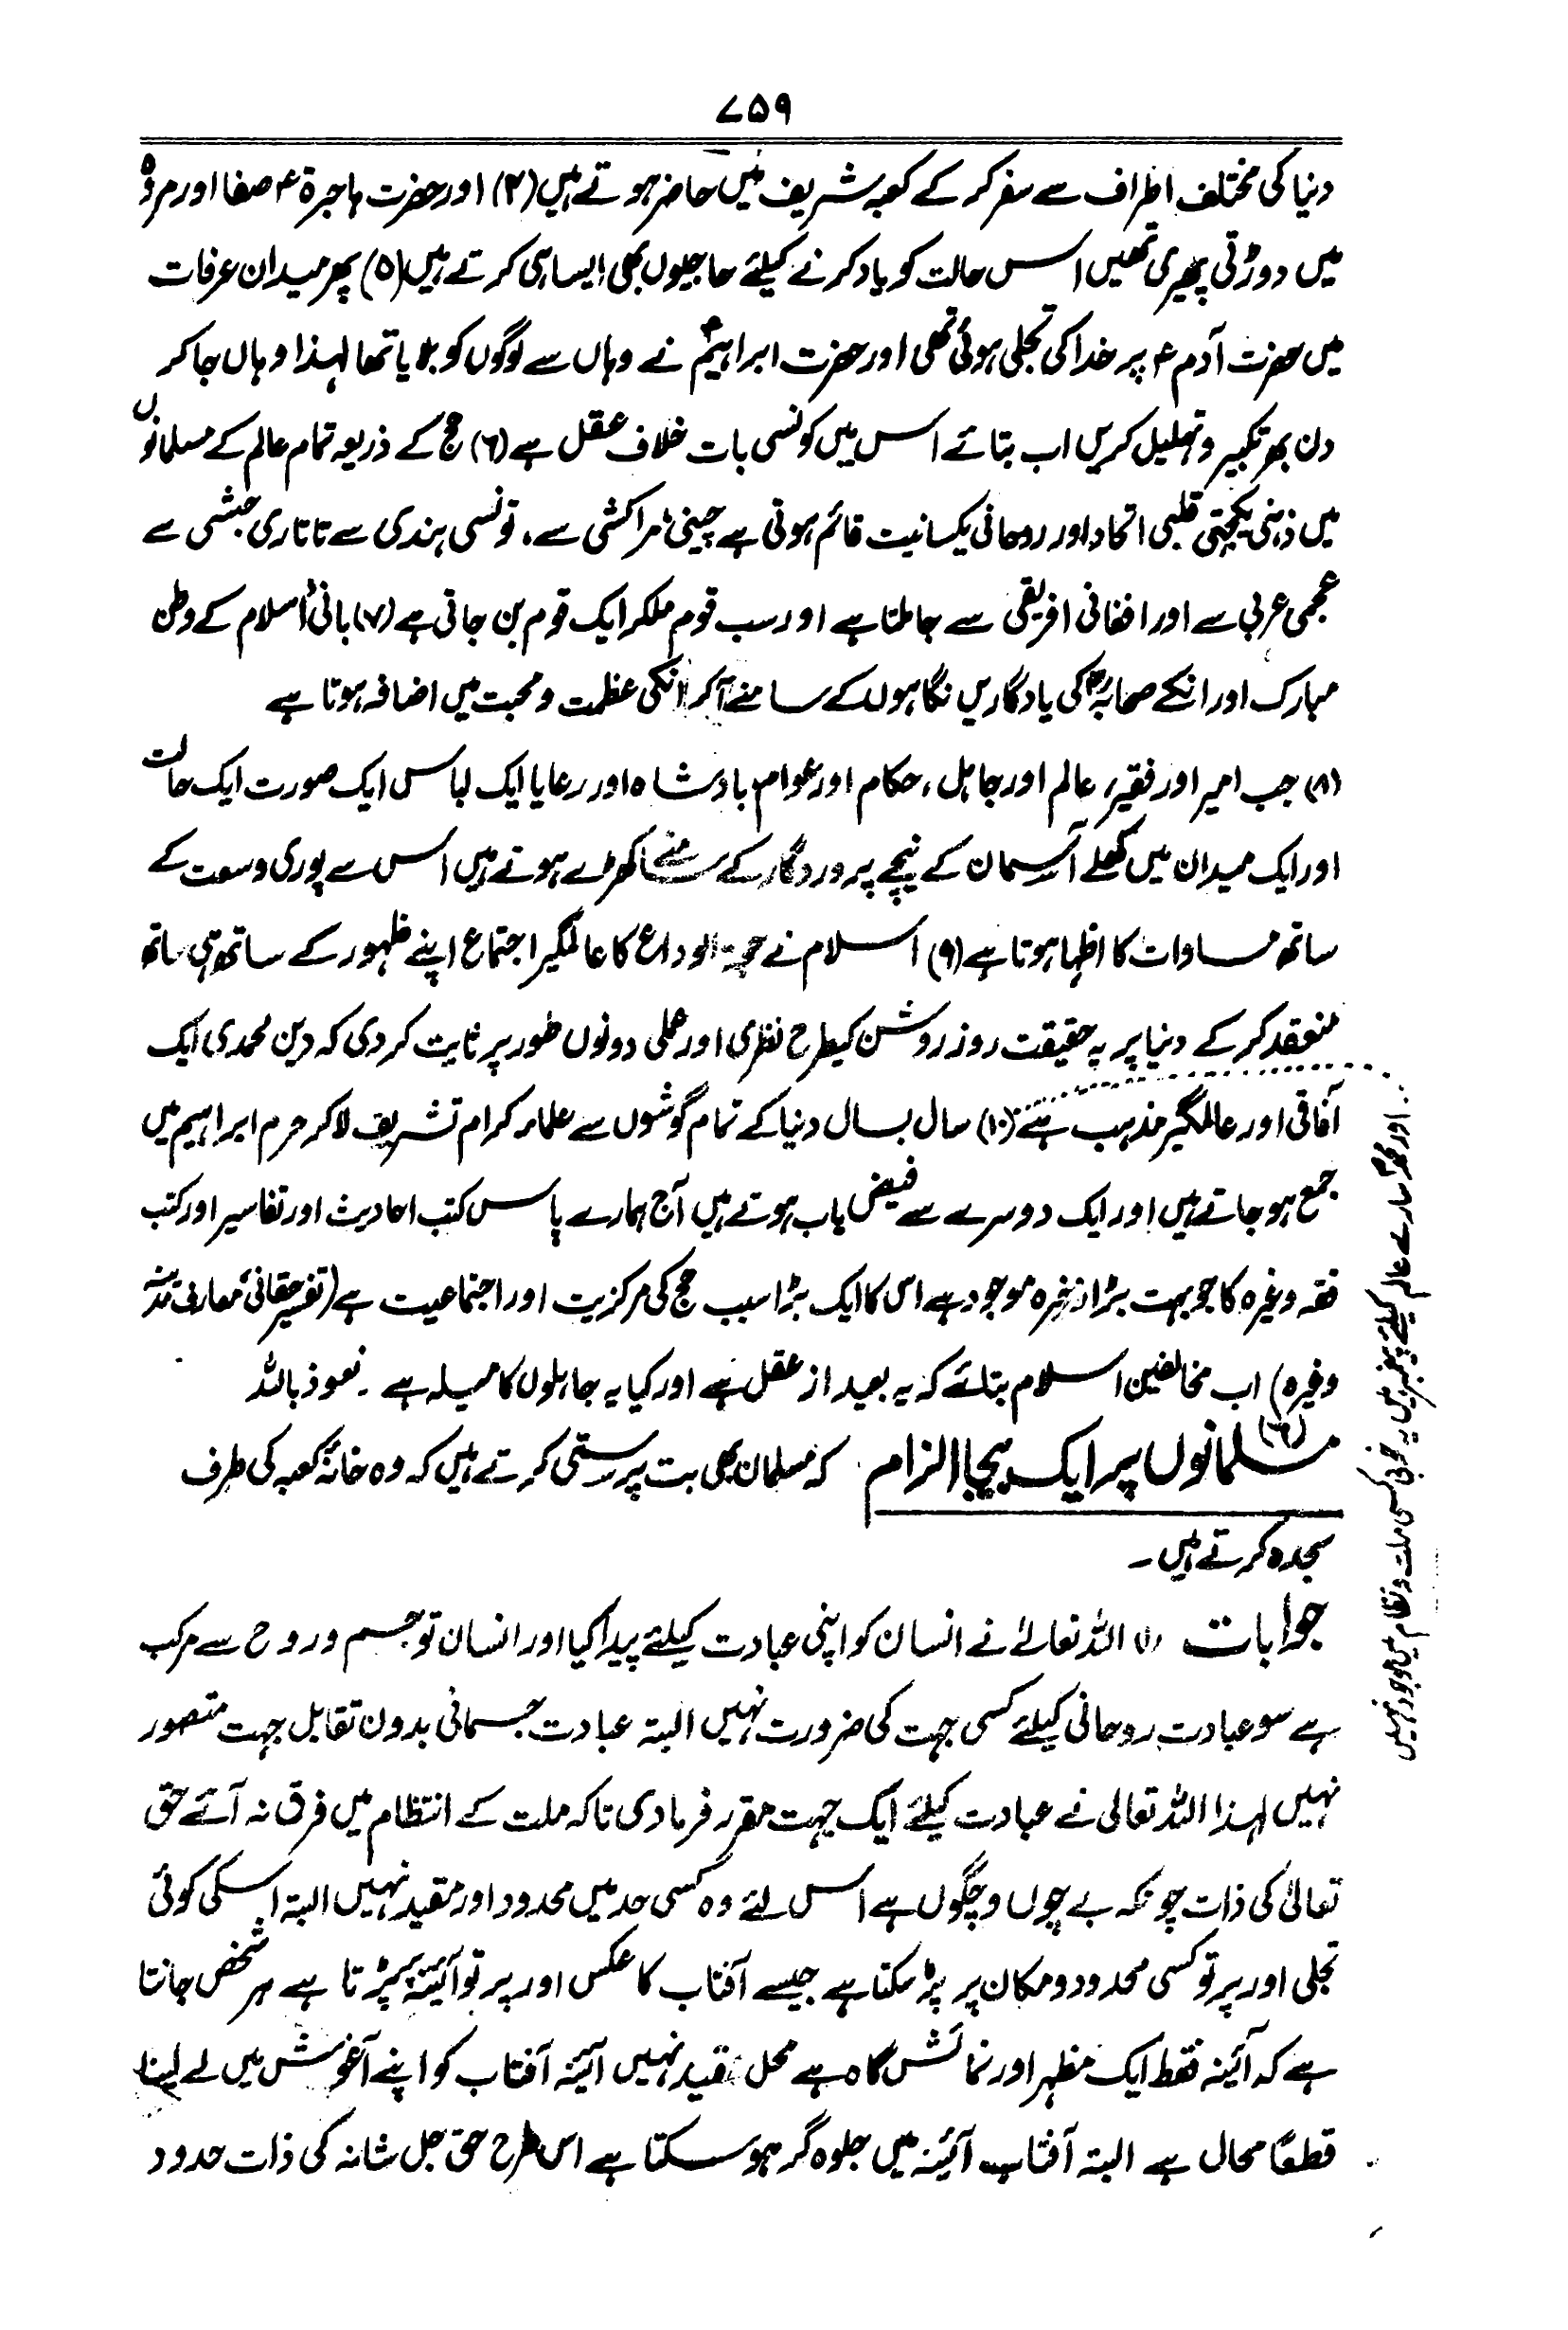 ۷۵۹
دنیا کی مختلف اطراف سے سفر کر کے کعبہ شریف میں حاضر ہوتے ہیں (۴) اور حضرت ہاجرۃؑ صفا اور مروہ
میں دوڑتی پھری تھیں اس حالت کو یاد کرنے کیلئے حاجیوں بھی ایسا ہی کرتے ہیں (۵) پھر میدان عرفات
میں حضرت آدمؑ پر خدا کی تجلی ہوئی تھی اور حضرت ابراہیمؑ نے وہاں سے لوگوں کو بلایا تھا لہذا وہاں جا کر
دن بھر تکبیر و تہلیل کریں اب بتائے اس میں کونسی بات خلاف عقل ہے (۶) حج کے ذریعہ تمام عالم کے مسلمانوں
میں ذہنی یکجہتی قلبی اتحاد اور روحانی یکسانیت قائم ہوتی ہے چینی مراکشی سے، تونسی ہندی سے تاتاری حبشی سے
عجمی عربی سے اور افغانی افریقی سے جا ملتا ہے اور سب قوم ملکر ایک قوم بن جاتی ہے (۷) بانئ اسلام کے وطن
مبارک اور انکے صحابہؓ کی یادگاریں نگاہوں کے سامنے آکر انکی عظمت و محبت میں اضافہ ہوتا ہے
(۸) جب امیر اور فقیر، عالم اور جاہل، حکام اور عوام بادشاہ اور رعایا ایک لباس ایک صورت ایک حالت
اور ایک میدان میں کھلے آسمان کے نیچے پروردگار کے سامنے کھڑے ہوتے ہیں اس سے پوری وسعت کے
ساتھ مساوات کا اظہا ہوتا ہے (۹) اسلام نے حجۃ الوداع کا عالمگیر اجتماع اپنے ظہور کے ساتھ ہی ساتھ
منعقد کر کے دنیا پر یہ حقیقت روز روشن کیطرح نظری اور عملی دونوں طور پر ثابت کر دی کہ دین محمدی ایک
آفاقی اور عالمگیر مذہب ہے (۱۰) سال بسال دنیا کے تمام گوشوں سے علماء کرام تشریف لا کر حرم ابراہیم میں
جمع ہو جاتے ہیں اور ایک دوسرے سے فیض یاب ہوتے ہیں آج ہمارے پاس کتب احادیث اور تفاسیر اور کتب
فقہ وغیرہ کا جو بہت بڑا ذخیرہ موجود ہے اس کا ایک بڑا سبب حج کی مرکزیت اور اجتماعیت ہے (تفسیر حقانی، معارف مدنیہ
وغیرہ) اب مخالفین اسلام بتائے کہ یہ بعید از عقل ہے اور کیا یہ جاہلوں کا میلہ ہے ۔ نعوذ باللہ
(۶) مسلمانوں پر ایک بیجا الزام کہ مسلمان بھی بت پرستی کرتے ہیں کہ وہ خانۂ کعبہ کی طرف
سجدہ کرتے ہیں ۔
جوابات (۱) اللہ تعالےٰ نے انسان کو اپنی عبادت کیلئے پیدا کیا اور انسان تو جسم و روح سے مرکب
ہے سو عبادت روحانی کیلئے کسی جہت کی ضرورت نہیں البتہ عبادت جسمانی بدون تقابل جہت متصور
نہیں لہذا اللہ تعالی نے عبادت کیلئے ایک جہت مقرر فرما دی تاکہ ملت کے انتظام میں فرق نہ آئے حق
تعالیٰ کی ذات چونکہ بے چوں و چگوں ہے اس لئے وہ کسی حد میں محدود اور مقید نہیں البتہ اسکی کوئی
تجلی اور پرتو کسی محدود و مکان پر پڑ سکتا ہے جیسے آفتاب کا عکس اور پرتو آئینہ پر پڑتا ہے ہر شخص جانتا
ہے کہ آئینہ فقط ایک مظہر اور نمائش گاہ ہے محل تقید نہیں آئینہ آفتاب کو اپنے آغوش میں لے لینا
قطعًا محال ہے البتہ آفتاب آئینہ میں جلوہ گر ہو سکتا ہے اس طرح حق جل شانہ کی ذات حدود
اور محمدؐ سارے عالم کیلئے پیغمبر ہیں یہ خوبی کسی ملت و نظام میں موجود نہیں